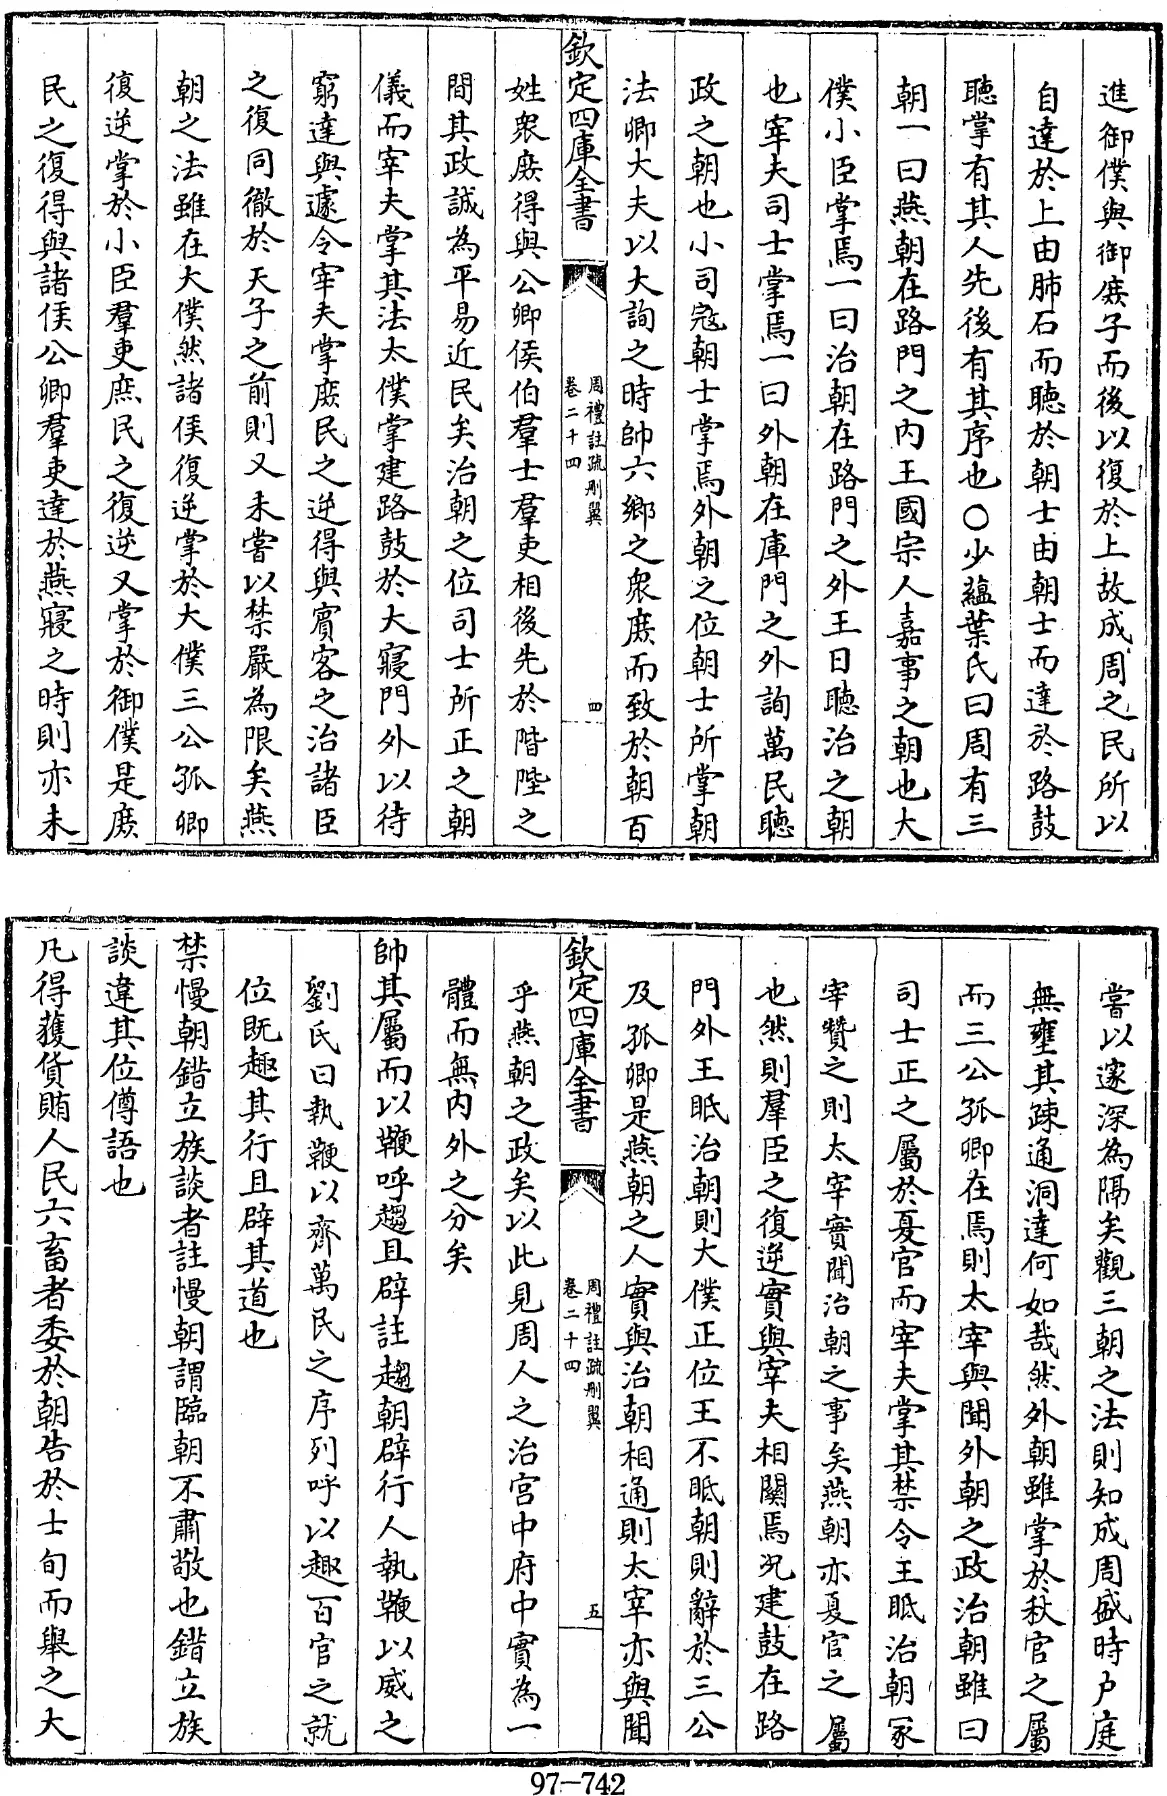 進御僕與御庻子而後以復於上故成周之民所以
自達於上由肺石而聽於朝士由朝士而達於路鼓
聽掌有其人先後有其序也○少蘊葉氏曰周有三
朝一曰燕朝在路門之内王國宗人嘉事之朝也大
僕小臣掌焉一曰治朝在路門之外王日聽治之朝
也宰夫司士掌焉一曰外朝在庫門之外詢萬民聽
政之朝也小司冦朝士掌焉外朝之位朝士所掌朝
法卿大夫以大詢之時帥六鄉之衆庻而致於朝百
欽定四庫全書
周禮註疏刪翼
卷二十四
四
姓衆庻得與公卿侯伯羣士羣吏相後先於階陛之
間其政誠為平易近民矣治朝之位司士所正之朝
儀而宰夫掌其法太僕掌建路鼓於大寢門外以待
窮達與遽令宰夫掌庻民之逆得與賓客之治諸臣
之復同徹於天子之前則又未嘗以禁嚴為限矣燕
朝之法雖在大僕然諸侯復逆掌於大僕三公孤卿
復逆掌於小臣羣吏庶民之復逆又掌於御僕是庻
民之復得與諸侯公卿羣吏達於燕寢之時則亦未
嘗以邃深為隔矣觀三朝之法則知成周盛時户庭
無壅其疎通洞達何如哉然外朝雖掌於秋官之屬
而三公孤卿在焉則太宰與聞外朝之政治朝雖曰
司士正之屬於夏官而宰夫掌其禁令王眡治朝冢
宰贊之則太宰實聞治朝之事矣燕朝亦夏官之屬
也然則羣臣之復逆實與宰夫相關焉况建鼓在路
門外王眡治朝則大僕正位王不眡朝則辭於三公
及孤卿是燕朝之人實與治朝相通則太宰亦與聞
欽定四庫全書
周禮註疏刪翼
卷二十四
五
乎燕朝之政矣以此見周人之治宫中府中實為一
體而無内外之分矣
帥其屬而以鞭呼趨且辟註趨朝辟行人執鞭以威之
劉氏曰執鞭以齊萬民之序列呼以趣百官之就
位既趣其行且辟其道也
禁慢朝錯立族談者註慢朝謂臨朝不肅敬也錯立族
談違其位僔語也
凡得獲貨賄人民六畜者委於朝告於士旬而舉之大
97-742